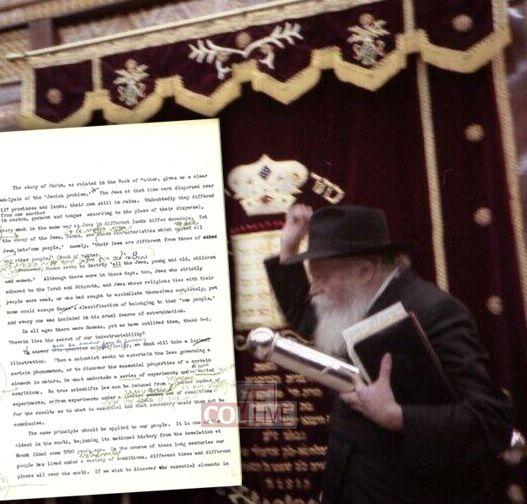 The story of Purim, as related in the Book of Esther, gives us a clear
analysis of the "Jewish problem."
The Jews at that time were dispersed over
127 provinces and lands, their own still in ruins. Undoubtedly they differed
from one another
in custom, garment and tongue according to the place of their dispersal,
very much in the same way as Jews in different lands differ nowadays. Yet
the enemy of the Jews, Haman, characteristics which united all
Jews into "one people," namely, "their laws are different from those of
other people," (Book of Esther
Moreover, Haman seeks to destroy "all the Jews, young and old, children
and women." Although there were in those days, too, Jews who strictly
adhered to the Torah and Mitzvoth, and Jews whose religious ties with their
people were weak, or who had sought to assimilate themselves completely, yet
none could escape Haman's classification of belonging to that "one people,"
and every one was included in his cruel decree of extermination.
In all ages there were Hamans, yet we have outlived them, thank G-d.
Wherein lies the secret of our indestructibility?
answer this question we shall take a
illustration. When a scientist seeks to ascertain the laws governing a
certain phenomenon, or to discover the essential properties of a certain
element in nature, he must undertake a series of experiments under varied
conditions. No true scientific law can be deduced from a limited number of
experiments, or from experiments under conditions
For the results as to what is essential and what secondary would then not be
conclusive.
The same principle should be applied to our people. It is one of the
oldest in the world, beginning its national history from the Revelation at
Mount Sinai some 3300 years ago. In the course of these long centuries our
people has lived under a variety of conditions, different times and different
places all over the world. If we wish to discover the essential elements in
COLLIVE